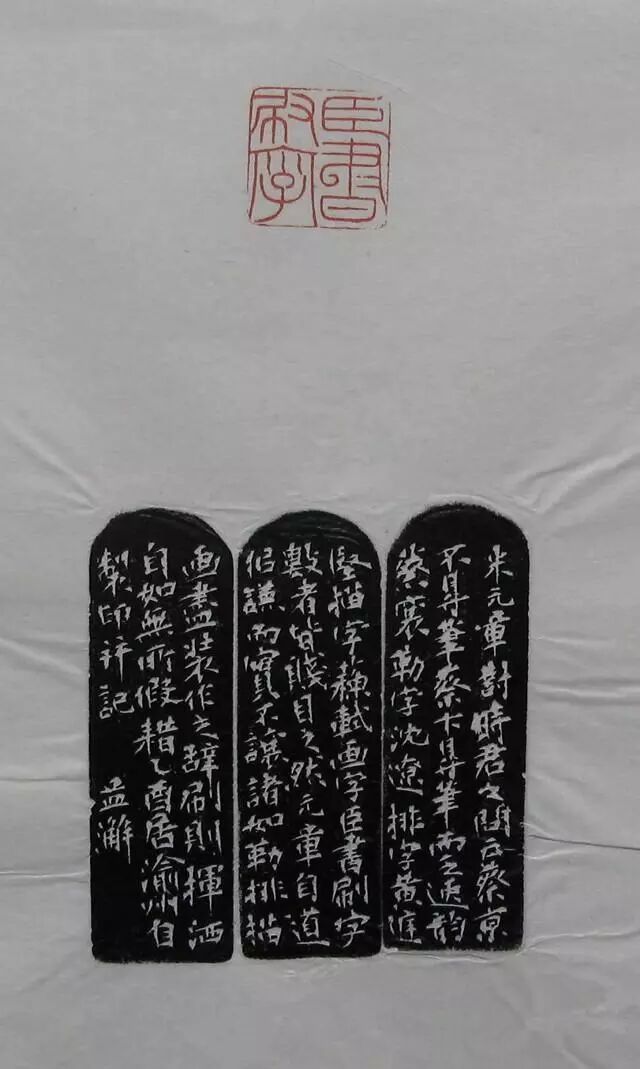 臣書
刷字
米元章對時君之問云蔡京
不得筆蔡卞得筆而乏逸韵
蔡襄勒字沈遼排字黄庭
堅描字蘇軾画字臣書刷字
數者皆賤目之然元章自道
似謙而實不讓諸如勒排描
画盡装作之辞刷則揮洒
自如無所假藉乙酉居渝州自
製印并記
孟澥